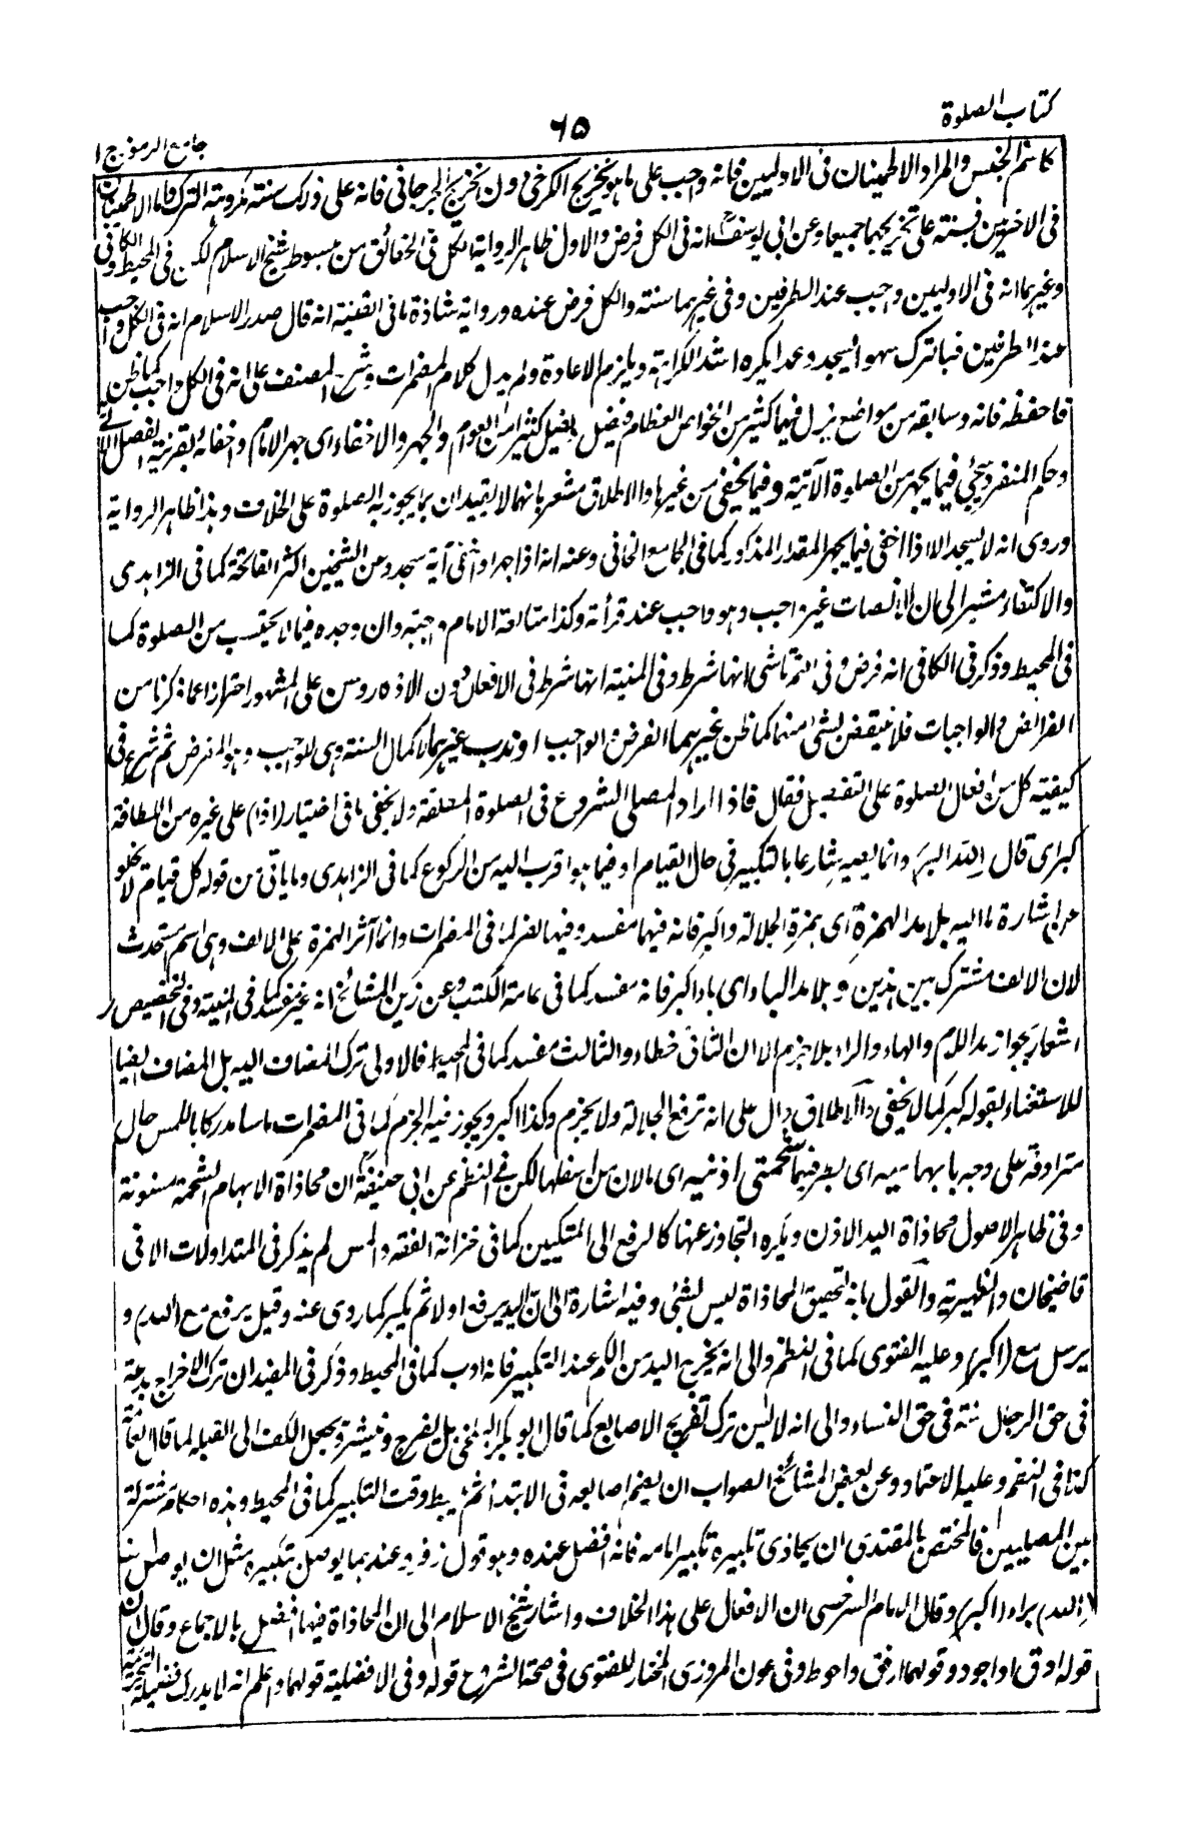 كتاب الصلوة
٦٥
جامع الرموز ج ١
كاسم الجنس والمراد الاطمينان فى الاوليين فانه واجب على ما هو تخريج الكرخى دون تخريج الجرجانى فانه على ذلك سنة مكروهة الترك واما الاطمينان
فى الاخريين فسنة على تخريجهما جميعا وعن ابى يوسف انه فى الكل فرض والاول ظاهر الرواية الكل فى الحقائق من مبسوط شيخ الاسلام لكن فى المحيط والكافى
وغيرهما انه فى الاوليين واجب عند الطرفين وفى غيرهما سنة والكل فرض عنده ورواية شاذة ما فى القنية انه قال صدر الاسلام انه فى الكل واجب
عند الطرفين فبالترك سهوا يسجد وعمدا يكره اشد الكراهة ويلزم الاعادة ولم يدل كلام المضمرات وشرح المصنف على انه فى الكل واجب كما ظن
فاحفظه فانه وسابقه من مواضع يزل فيها كثير من الخواص العظام فيضل بفضل كثير من العوام والجهر والاخفاء اى جهر الامام واخفائه بقرينة الفصل
وحكم المنفرد يجئ فيما يجهر من الصلوة الآتية وفيما يخفى من غيرها والاطلاق مشعر بانهما لا يقيدان بما يجوز به الصلوة على الخلاف وهذا ظاهر الرواية
وروى انه لا يسجد الا اذا اخفى فيما يجهر المقدار المذكور كما فى الجامع الخانى وعنه انه اذا جهر او اخفى آية سجد وعن الشيخين اكثر الفاتحة كما فى الزاهدى
والاكتفاء مشير الى ان الانصات غير واجب وهو واجب عند قرأته وكذا متابعة الامام واجبة وان وجده فيما لا يحتسب من الصلوة كما
فى المحيط وذكر فى الكافى انه فرض وفى التمرتاشى انها شرط وفى المنية انها شرط فى الافعال دون الاذكار وسن على المشهور احترازا عما ذكرنا من
الفرائض والواجبات فلا ينتقض بشئ منها كما ظن غيرهما الفرض والواجب او ندب غيرهما لاكمال السنة وهى للواجب وهو للفرض ثم شرع فى
كيفية كل من افعال الصلوة على التفصيل فقال فاذا اراد المصلى الشروع فى الصلوة المطلقة ولا يخفى ما فى اختيار (اذا) على غيره من اللطافة
كبر اى قال الله اكبر وانما يصير شارعا بالتكبير فى حال القيام او فيما هو اقرب اليه من الركوع كما فى الزاهدى وما ياتى من قوله كل قيام لا يخلو
عن اشارة ما اليه بلا مد الهمزة اى همزة الجلالة واكبر فانه فيهما مفسد وفيهما كفر كما فى المضمرات وانما آثر الهمزة على الالف وهى اسم مستحدث
لان الالف مشترك بين هذين وبلا مد الباء اى باء اكبر فانه مفسد كما فى عامة الكتب وعن زين المشائخ انه غير مفسد كما فى المنية وفى التخصيص
اشعار بجواز مد اللام والهاء والراء بلا جزم الا ان الثانى خطاء والثالث مفسد كما فى المحيط فالاولى ترك المضاف اليه بل المضاف ايضا
للاستغناء بقوله كبر كما لا يخفى والاطلاق دال على انه ترفع الجلالة ولا يجزم وكذا اكبر ويجوز فيه الجزم كما فى المضمرات ماسا مدركا باللمس حال
مترادفة على وجه بابهاميه اى بطرفيهما شحمتى اذنيه اى ما لان من اسفلها لكن فى النظم عن ابى حنيفة ان محاذاة الابهام الشحمة مسنونة
وفى ظاهر الاصول محاذاة اليد الاذن ويكره التجاوز عنها كالرفع الى المنكبين كما فى خزانة الفقه والمس لم يذكر فى المتداولات الا فى
قاضيخان والظهيرية والقول بانه لتحقيق المحاذاة ليس بشئ وفيه اشارة الى ان اليد يرفع اولا ثم يكبر كما روى عنه وقيل يرفع مع (الله) و
يرسل مع (اكبر) وعليه الفتوى كما فى النظم والى انه يخرج اليد من الكم عند التكبير فانه ادب كما فى المحيط وذكر فى المفيد ان ترك الاخراج بدعة
فى حق الرجال سنة فى حق النساء والى انه لا ليسن ترك تفريج الاصابع كما قال ابو بكر البلخى بل يفرج وينشر ويجعل الكف الى القبلة لما قال العامة
كذا فى النظم وعليه الاعتماد وعن بعض المشائخ الصواب ان يضم اصابعه فى الابتداء ثم يبسط وقت التكبير كما فى المحيط وهذه احكام مشتركة
بين المصليين فالمختص بالمقتدى ان يحاذى تكبيره تكبير امامه فانه افضل عنده وهو قول زفر وعندهما يوصل تكبيره مثل ان يوصل
(الله) براء (اكبر) وقال الامام السرخسى ان الافعال على هذا الخلاف واشار شيخ الاسلام الى ان المحاذاة فيها افضل بالاجماع وقال ان
قوله ادق واجود وقولهما ارفق واحوط وفى عون المروزى المختار للفتوى فى صحة الشروع قوله وفى الافضلية قولهما واعلم انه لا يدرك فضيلة التحريمة